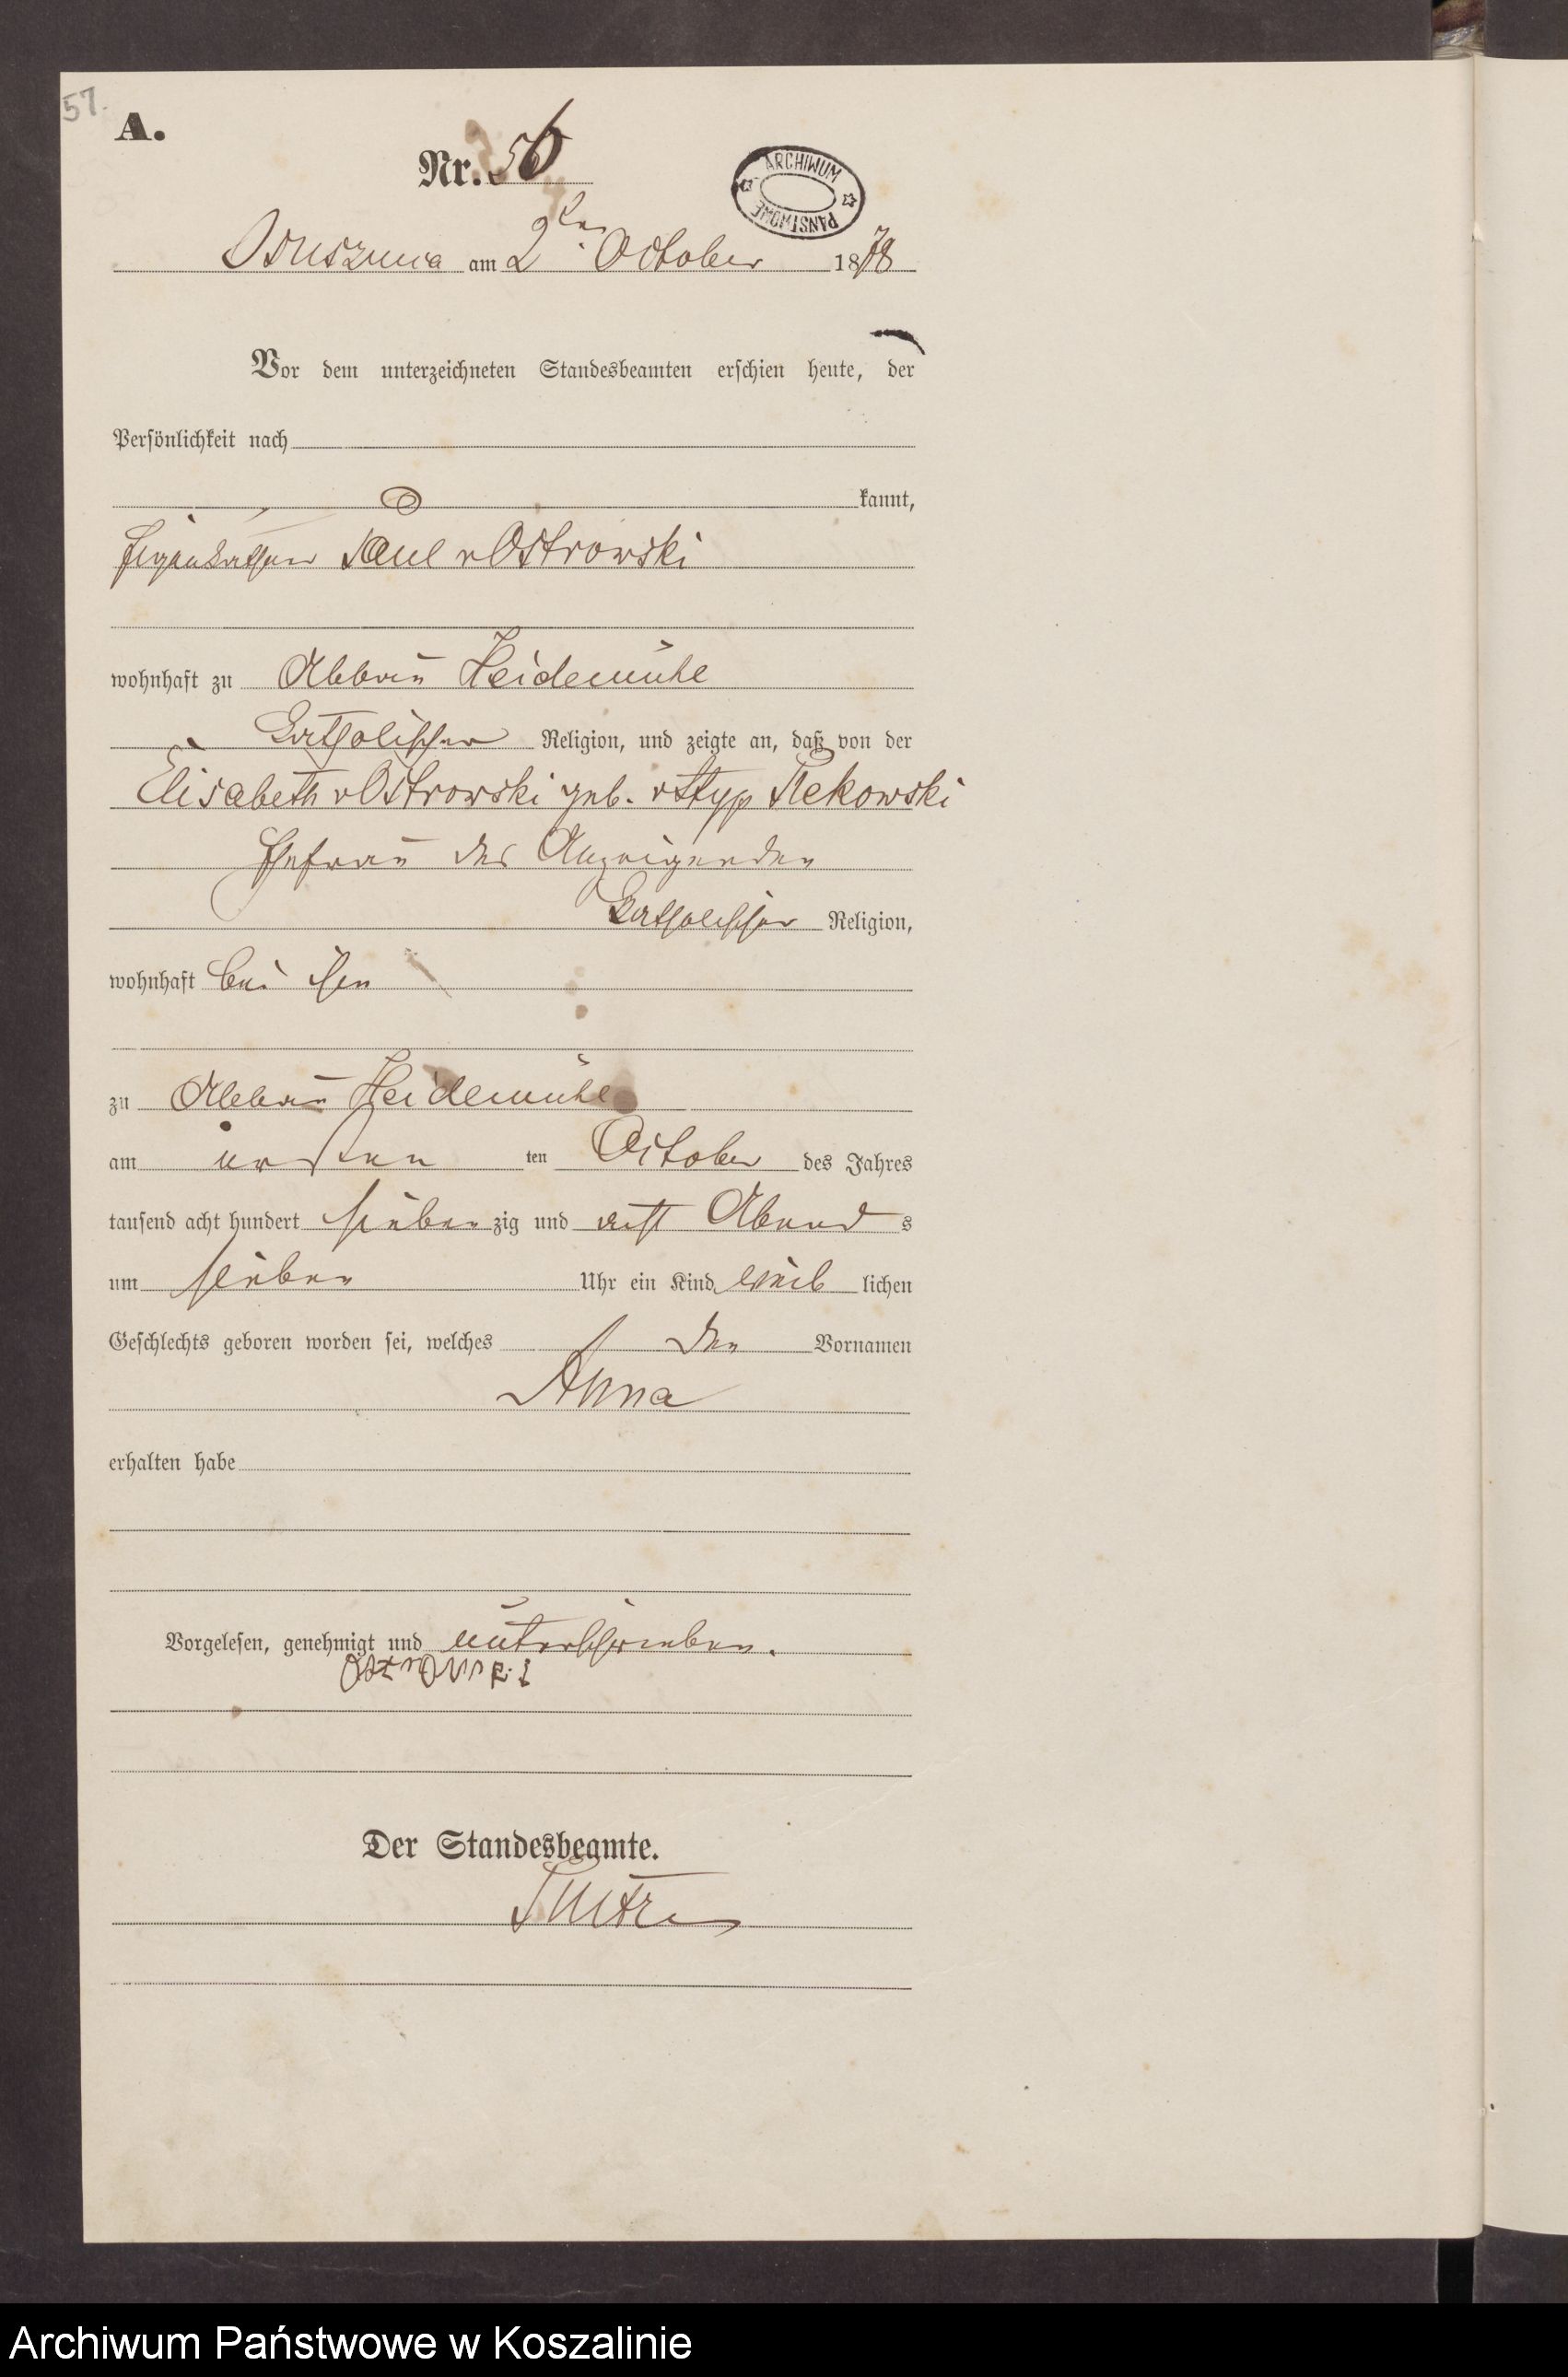 57.
A.
Nr. 56
ARCHIWUM PAŃSTWOWE
am 2ten October 1878
Vor dem unterzeichneten Standesbeamten erschien heute, der
Persönlichkeit nach
kannt,
Paul v Ostrowski
wohnhaft zu Abbau Heidemühl
katholischer Religion, und zeigte an, daß von der
Elisabeth v Ostrowski geb. v Styp Rekowski
Ehefrau des Anzeigenden
katholischer Religion,
wohnhaft bei ihm
zu Abbau Heidemühl
am ersten ten October des Jahres
tausend acht hundert sieben zig und acht Abend s
um sieben Uhr ein Kind weib lichen
Geschlechts geboren worden sei, welches den Vornamen
Anna
erhalten habe
Vorgelesen, genehmigt und unterschrieben.
Ostrowski
Der Standesbeamte.
Archiwum Państwowe w Koszalinie